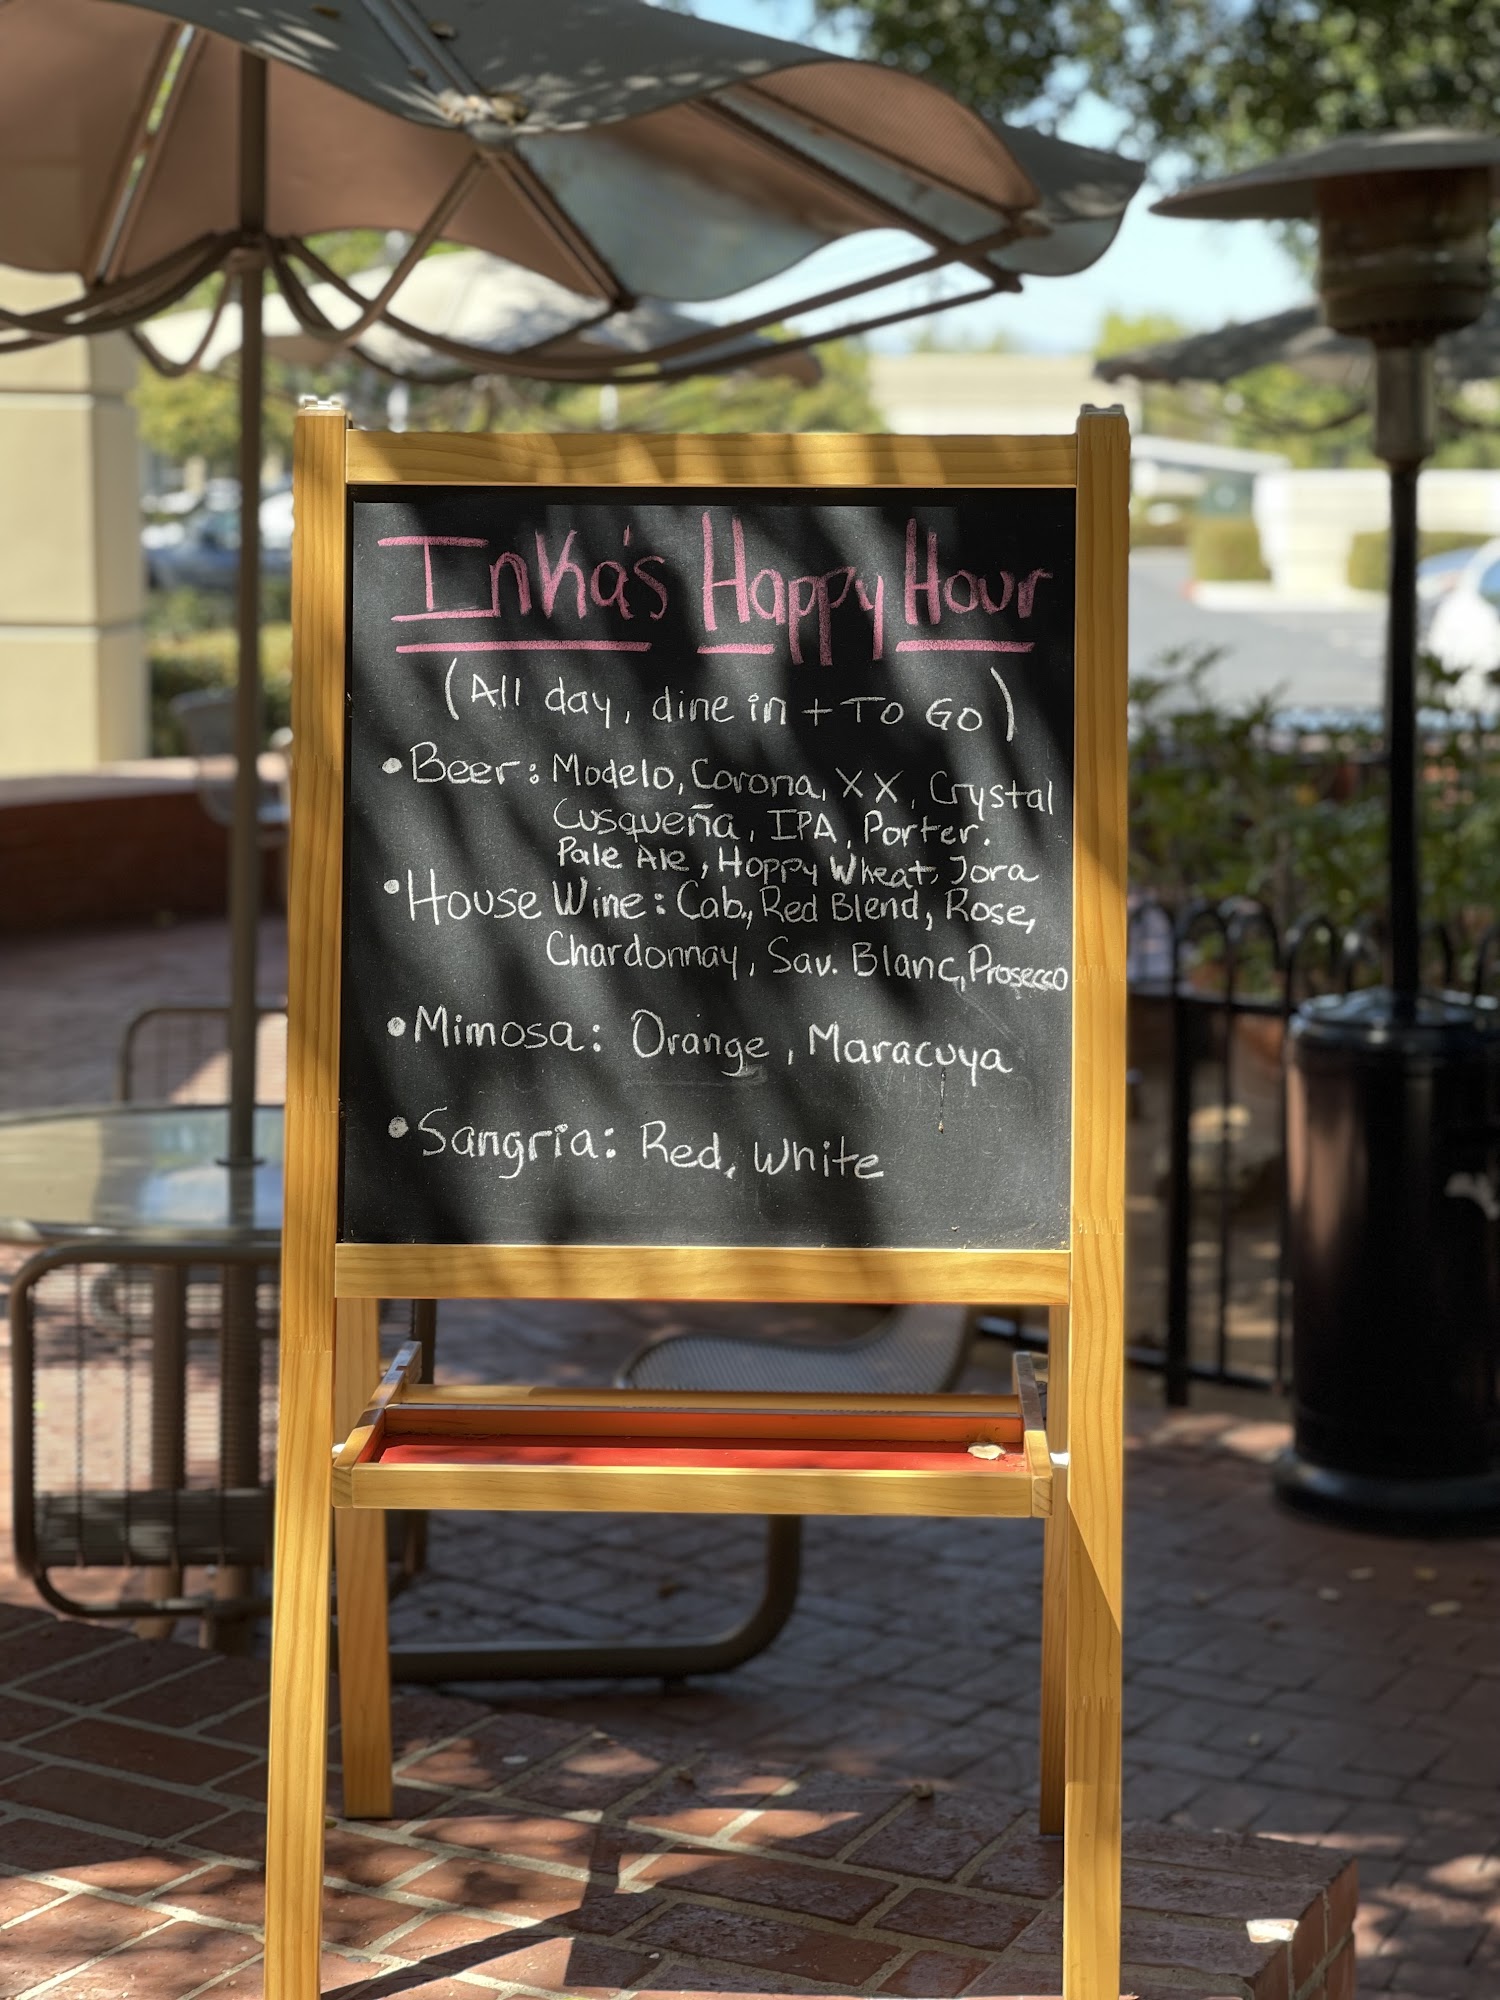 Inka's Happy Hour
(All day, dine in + TO GO)
• Beer: Modelo, Corona, XX, Crystal
Cusqueña, IPA, Porter.
Pale Ale, Hoppy Wheat, Jora
• House Wine: Cab., Red Blend, Rose,
Chardonnay, Sav. Blanc, Prosecco
• Mimosa: Orange, Maracuya
• Sangria: Red, White